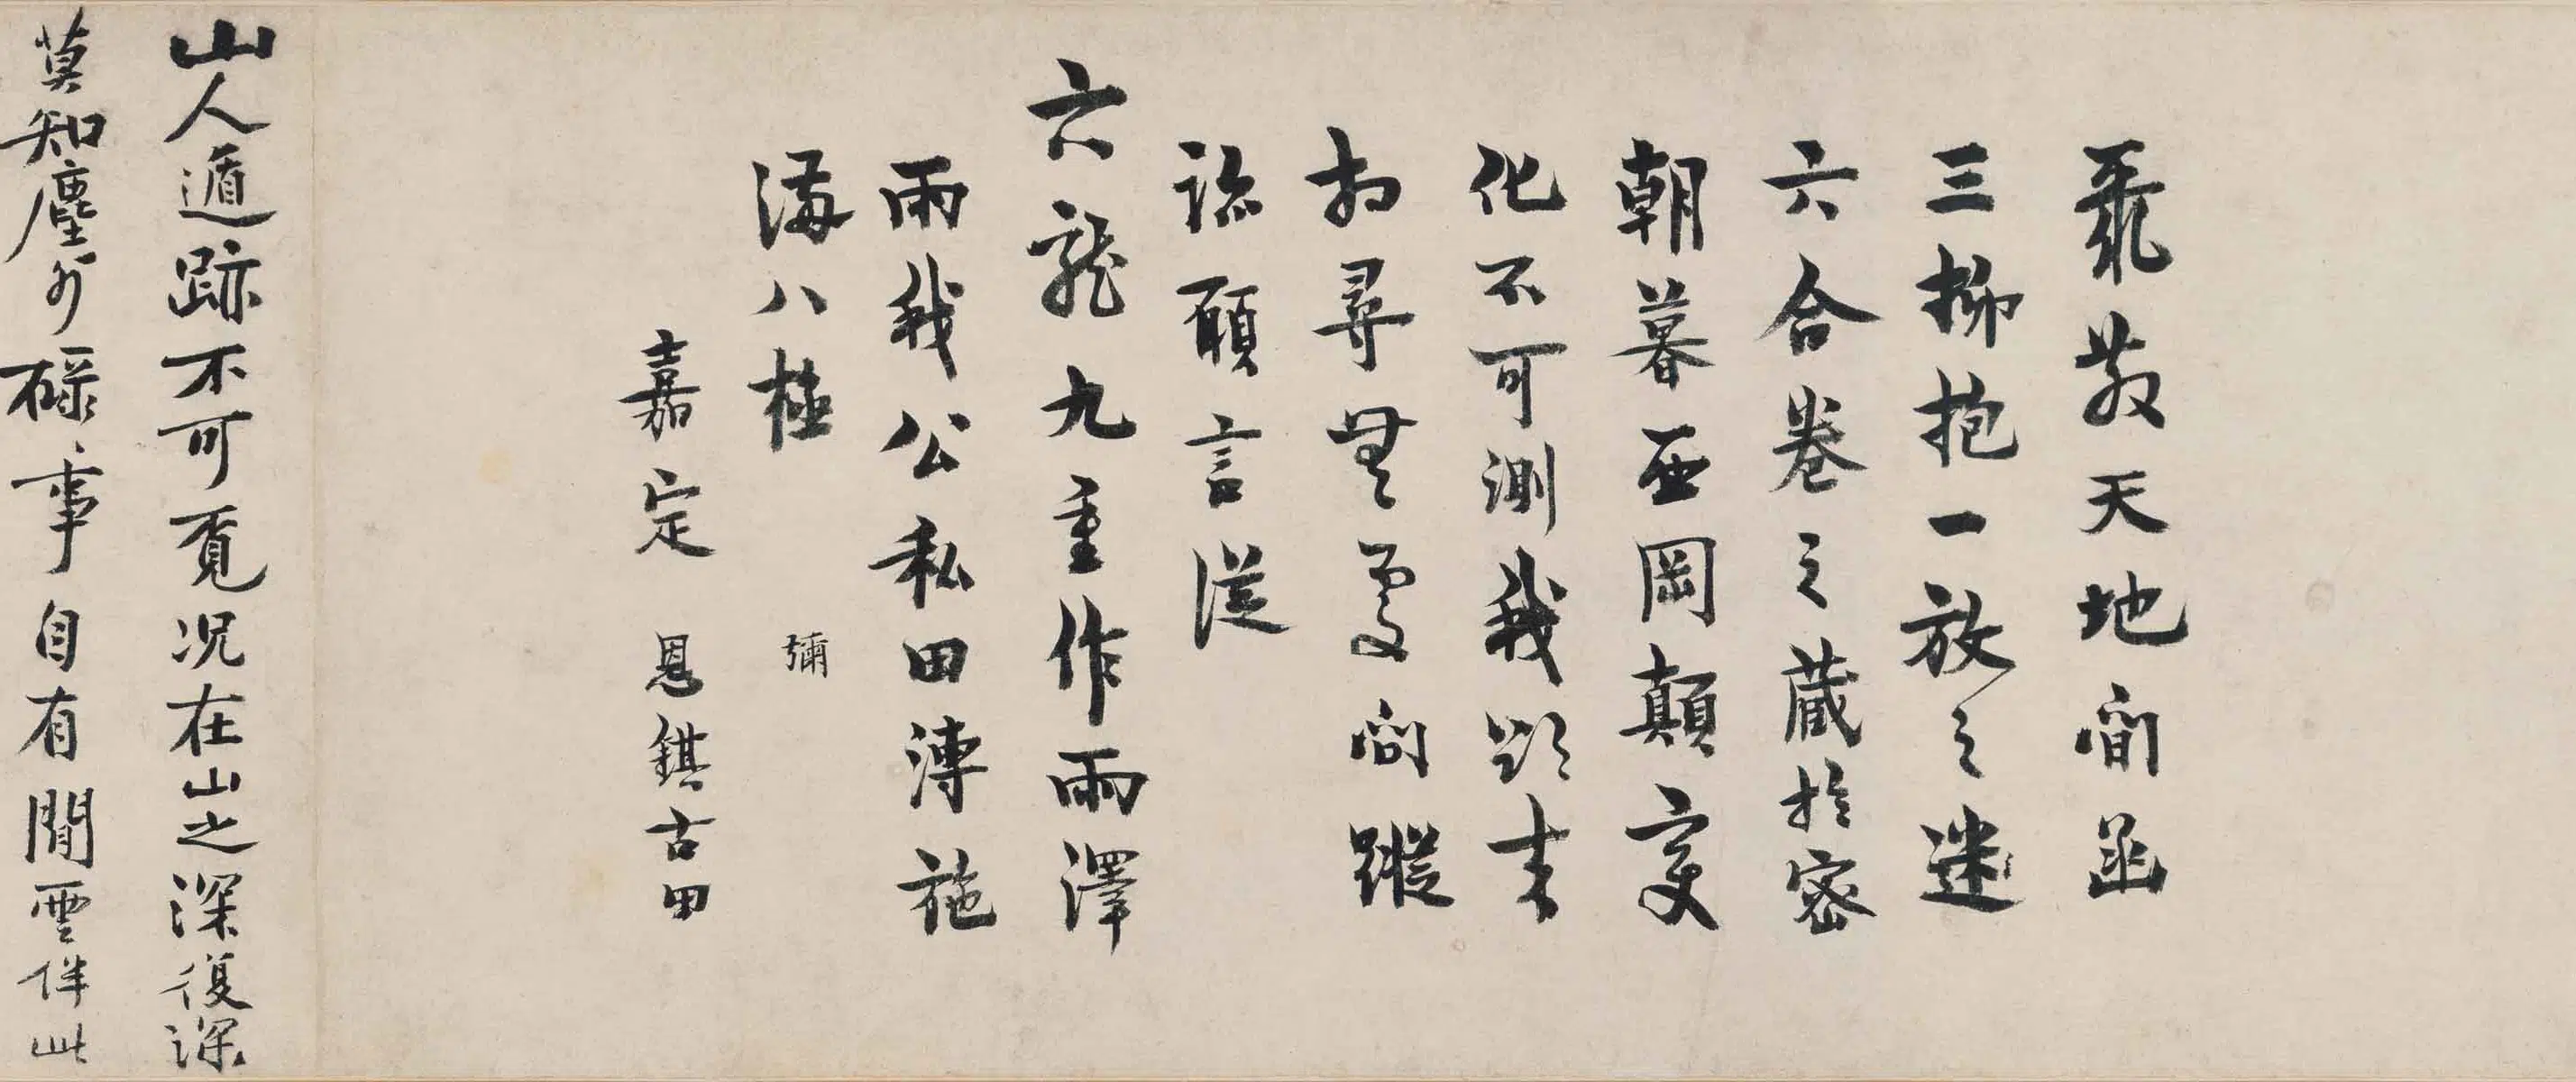 氣散天地間函
三抑抱一放之迷
六合卷之藏於密
朝暮亟岡顛變
化不可測我欲来
相尋無處問蹤
跡願言從
六龍九重作雨澤
雨我公私田溥施
滿八極
彌
嘉定 恩錤古田
山人遁跡不可覓況在山之深復深
莫知塵外碌事自有閒雲伴此